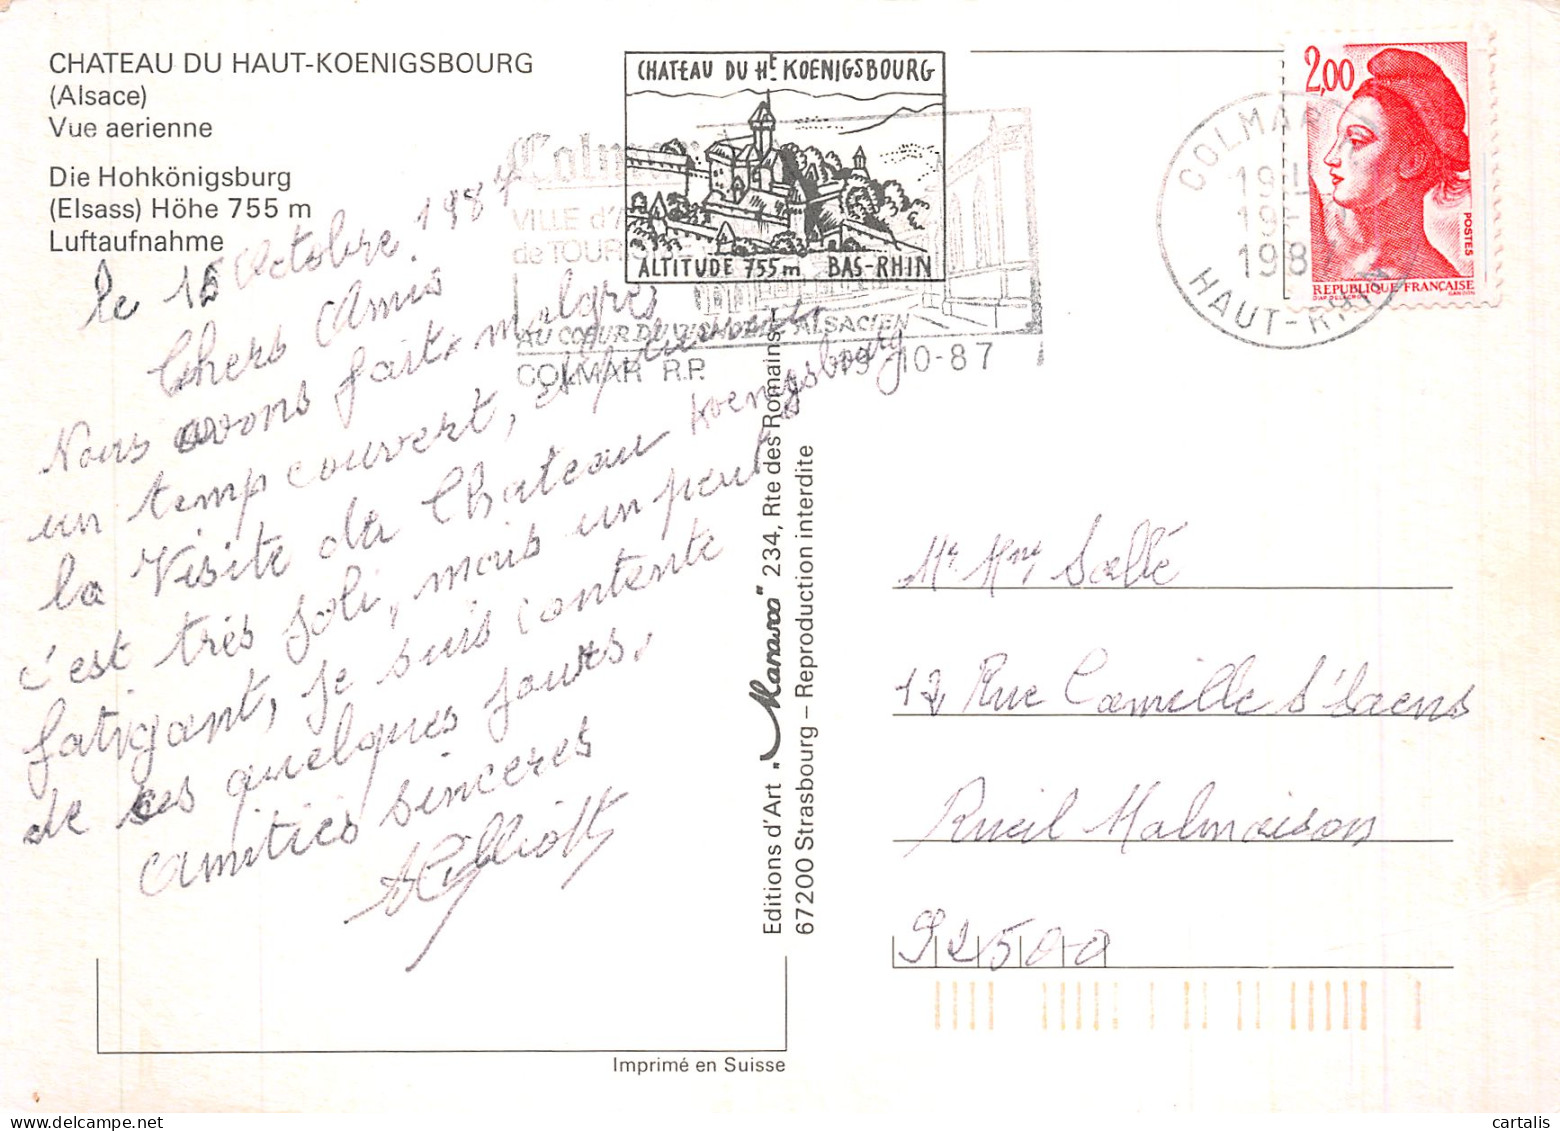 CHATEAU DU HAUT-KOENIGSBOURG
(Alsace)
Vue aerienne
Die Hohkönigsburg
(Elsass) Höhe 755 m
Luftaufnahme
CHATEAU DU HT KOENIGSBOURG
ALTITUDE 755m BAS-RHIN
Colmar
VILLE d'
de TOURIS
AU CŒUR DU VIGNOBLE ALSACIEN
COLMAR R.P. 19-10-87
COLMAR
19 H
19-
198
HAUT-RHIN
2,00
POSTES
REPUBLIQUE FRANÇAISE
le 15 Octobre 1987
Chers Amis
Nous avons fait, malgres
un temp couvert,
la Visite du Chateau Koenigsbourg
c'est très joli, mais un peut
fatigant, je suis contente
de ses quelques jours,
amitiés sinceres
Editions d'Art „Marasco" 234, Rte des Romains –
67200 Strasbourg – Reproduction interdite
Mr Mme Sallé
12 Rue Camille S'Saens
Rueil Malmaison
92500
Imprimé en Suisse
cartalis